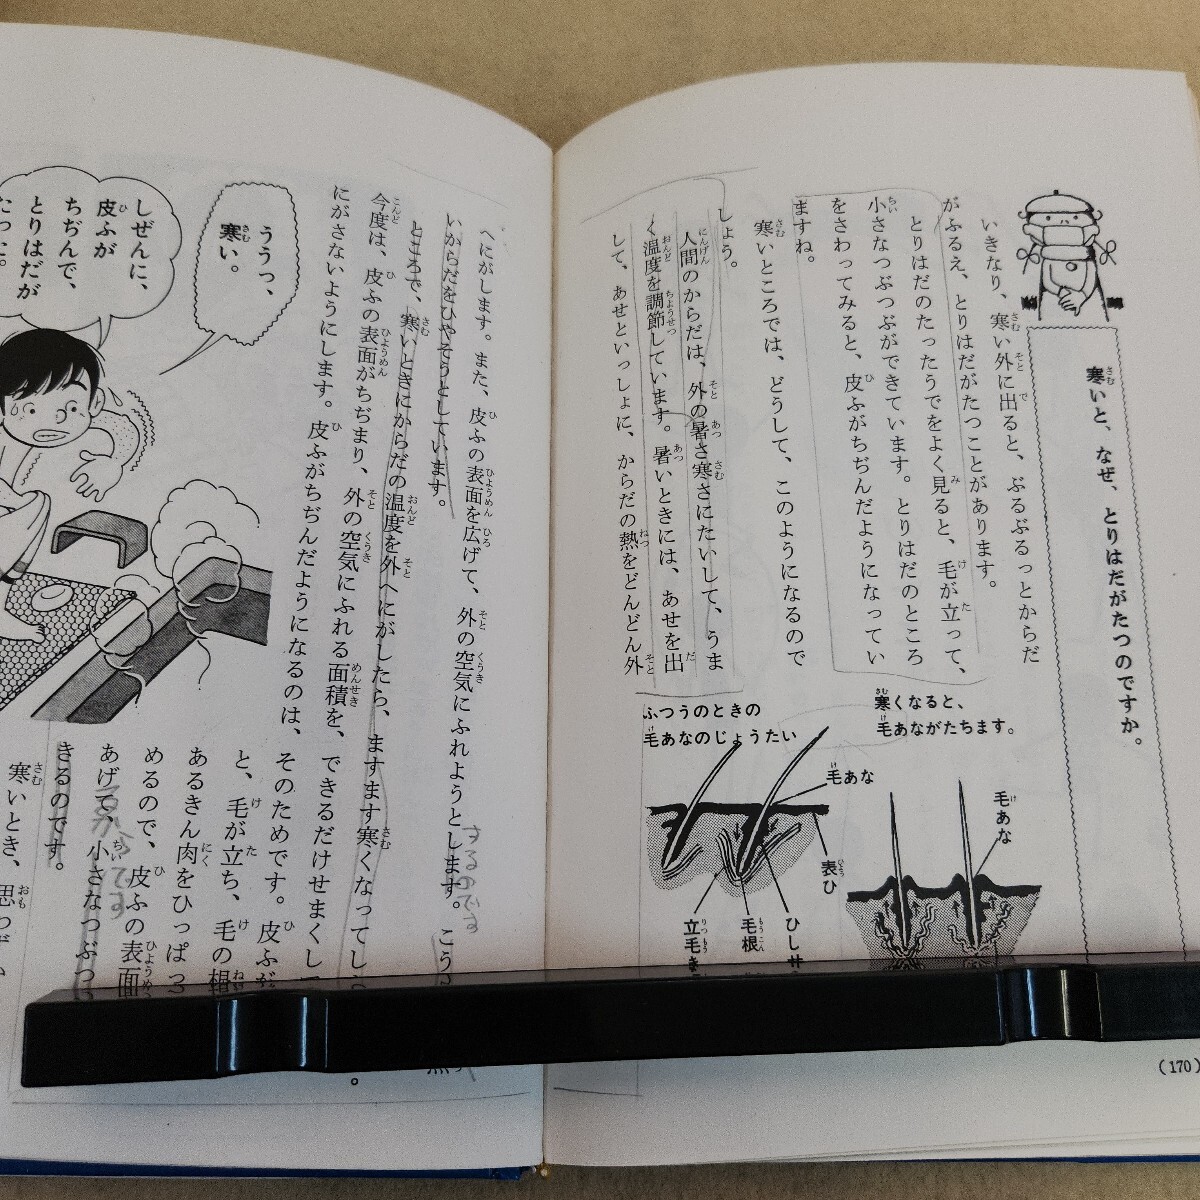 寒いと、なぜ、とりはだがたつのですか。
いきなり、寒い外に出ると、ぶるぶるっとからだ
がふるえ、とりはだがたつことがあります。
とりはだのたったうでをよく見ると、毛が立って、
小さなつぶつぶができています。とりはだのところ
をさわってみると、皮ふがちぢんだようになってい
ますね。
寒いところでは、どうして、このようになるので
しょう。
人間のからだは、外の暑さ寒さにたいして、うま
く温度を調節しています。暑いときには、あせを出
して、あせといっしょに、からだの熱をどんどん外
寒くなると、
毛あながたちます。
毛あな
ふつうのときの
毛あなのじょうたい
毛あな
表ひ
ひしせ
毛根
立毛き
(170)
へにがします。また、皮ふの表面を広げて、外の空気にふれようとします。こう
いからだをひやそうとしています。
するのです
ところで、寒いときにからだの温度を外へにがしたら、ますます寒くなってし
今度は、皮ふの表面がちぢまり、外の空気にふれる面積を、できるだけせまくして
にがさないようにします。皮ふがちぢんだようになるのは、
そのためです。皮ふが
と、毛が立ち、毛の根
あるきん肉をひっぱっ
めるので、皮ふの表面
あげて、小さなつぶつ
きるのです。
寒いとき、思わず
ううっ、
寒い。
しぜんに、
皮ふが
ちぢんで、
とりはだが
たった。